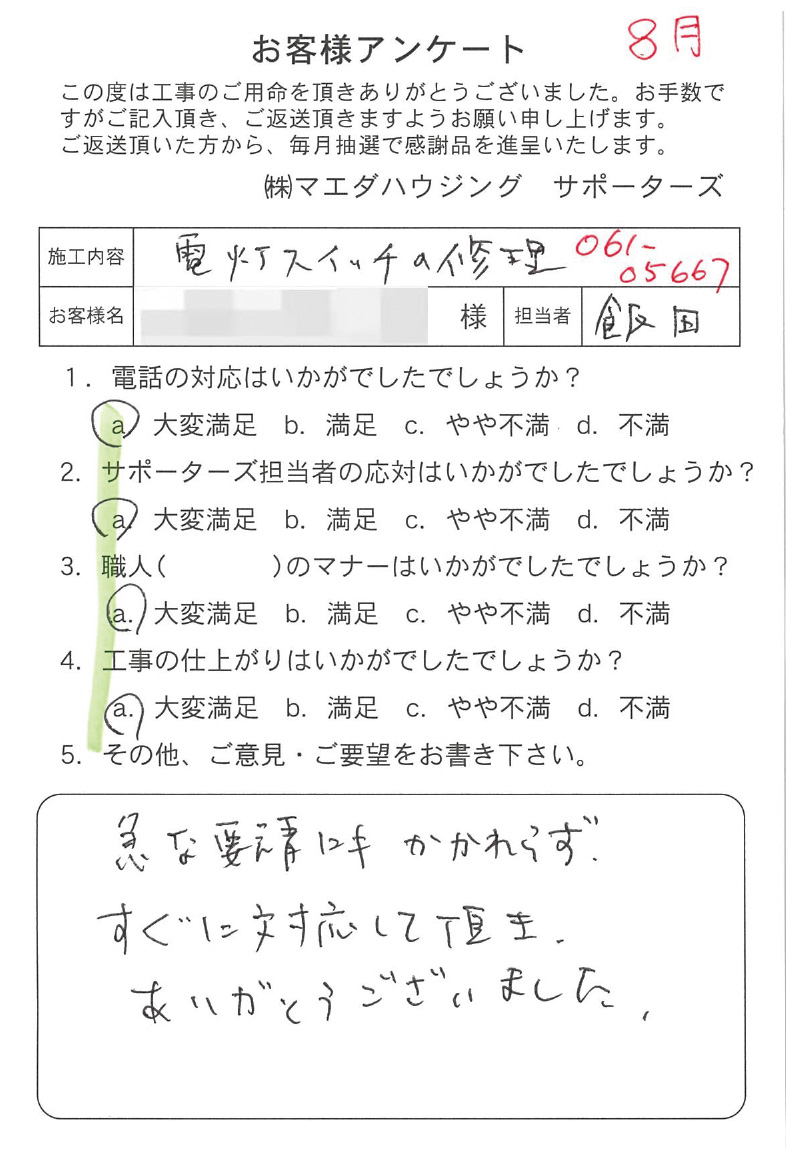 8月
お客様アンケート
この度は工事のご用命を頂きありがとうございました。お手数で
すがご記入頂き、ご返送頂きますようお願い申し上げます。
ご返送頂いた方から、毎月抽選で感謝品を進呈いたします。
㈱マエダハウジング　サポーターズ
施工内容 電灯スイッチの修理 061-
05667
お客様名 様 担当者 飯田
1. 電話の対応はいかがでしたでしょうか？
a 大変満足 b. 満足 c. やや不満 d. 不満
2. サポーターズ担当者の応対はいかがでしたでしょうか？
a. 大変満足 b. 満足 c. やや不満 d. 不満
3. 職人(　　　　)のマナーはいかがでしたでしょうか？
a. 大変満足 b. 満足 c. やや不満 d. 不満
4. 工事の仕上がりはいかがでしたでしょうか？
a. 大変満足 b. 満足 c. やや不満 d. 不満
5. その他、ご意見・ご要望をお書き下さい。
急な要請にも かかわらず、
すぐに対応して頂き、
ありがとうございました。